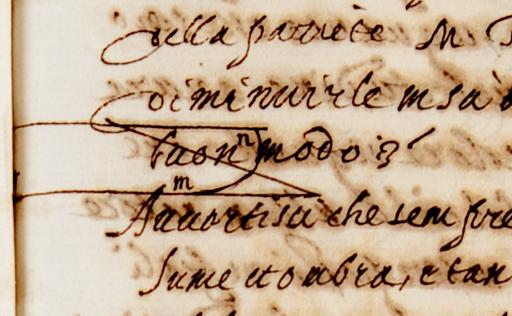 della pariete M
diminuirle in sà
buon modo 3
n
m
Avvertisci che sempre
lume et ombra, e tan